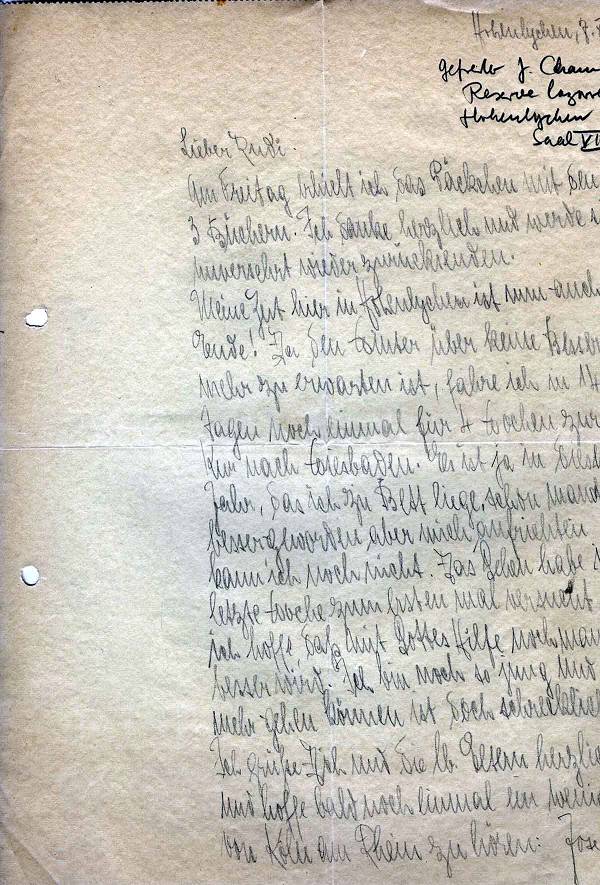 Hohenlychen, 7.
Gefreiter J.
Reserve Lazare
Hohenlychen
Saal VI
Lieber Rudi.
Am Freitag erhielt ich das Päckchen mit den
3 Büchern. Ich danke herzlich und werde s
unversehrt wieder zurücksenden.
Meine Zeit hier in Hohenlychen ist nun auch
Ende! Da den Winter über keine Besser
mehr zu erwarten ist, fahre ich in 14
Tagen noch einmal für 4 Wochen zur
Kur nach Wiesbaden. Es ist ja in diese
Jahr, das ich zu Bett liege, schon manch
besser geworden aber mich aufrichten
kann ich noch nicht. Das Gehen habe i
letzte Woche zum ersten mal versucht
ich hoffe daß mit Gottes Hilfe noch man
besser wird. Ich bin noch so jung und
mehr gehen können ist doch schrecklich
Ich grüße Dich und die lb. Eltern herzlic
und hoffe bald noch einmal ein wenig
von Köln am Rhein zu hören. Jose